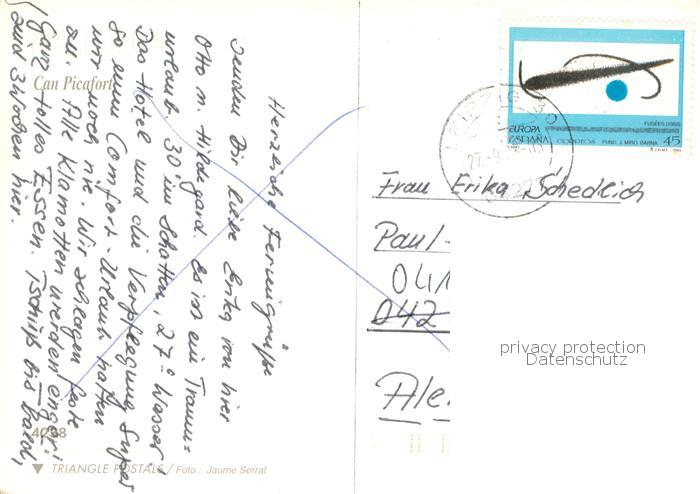 Herzliche Feriengrüße
senden Dir liebe Erika von hier
Otto u. Hildegard. Es ist ein Traum=
urlaub 30° im Schatten, 27° Wasser,
Das Hotel und die Verpflegung Super
so einen Comfort-Urlaub hatten
wir noch nie. Wir schlagen feste
zu. Alle Klamotten werden enger!
Ganz tolles Essen. Tschüß bis bald,
sind 3 Wochen hier.
Can Picafort
4038
TRIANGLE POSTALS / Foto: Jaume Serrat
LEIPZIG
FUSÉES (1959)
EUROPA
ESPAÑA
FUND. J. MIRÓ. BARNA.
45
Frau Erika Schedlich
Paul-
041
042
Ale
privacy protection
Datenschutz